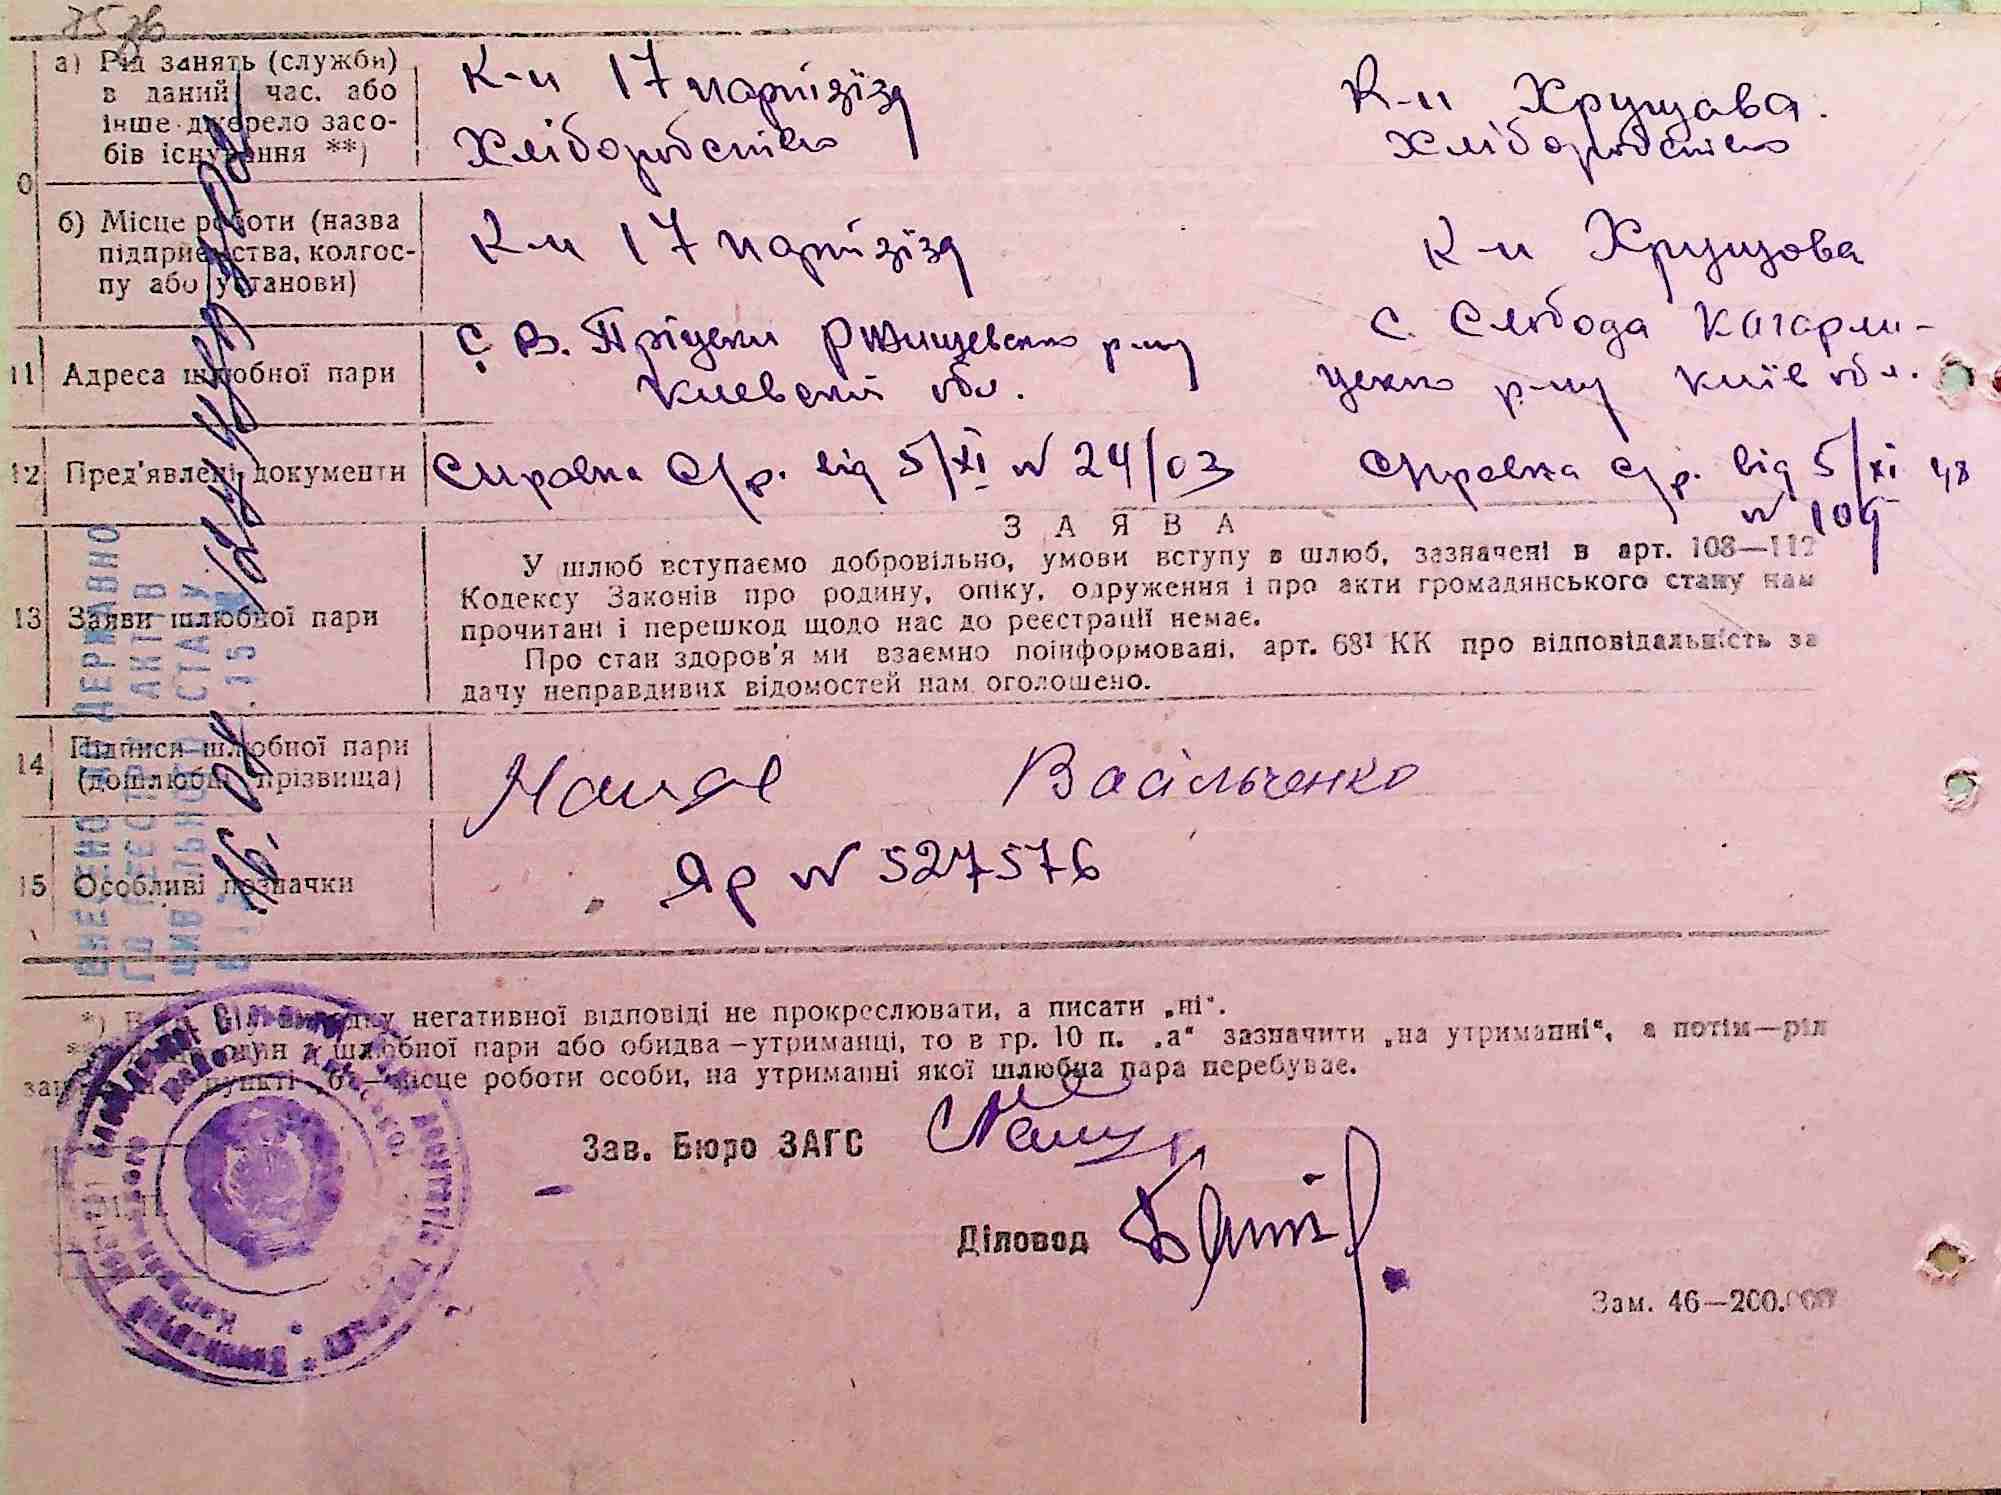 а) Рід занять (служби)
в даний час. або
інше джерело засо-
бів існування **)
К-п 17 партзїзд
Хліборобство
К-п Хрущова.
Хліборобство
б) Місце роботи (назва
підприємства, колгос-
пу або установи)
К-п 17 партзїзд
К-п Хрущова
11 Адреса шлюбної пари
с В. Пріцьки Ржищевського р-ну
Киевской обл.
с. Слобода Кагарли-
цького р-ну Київ обл.
12 Пред'явлені документи
Справка с/р. від 5/XI № 24/03
Справка с/р. від 5/XI 48
№ 109
13 Заяви шлюбної пари
ЗАЯВА
У шлюб вступаємо добровільно, умови вступу в шлюб, зазначені в арт. 108—112
Кодексу Законів про родину, опіку, одруження і про акти громадянського стану нам
прочитані і перешкод щодо нас до реєстрації немає.
Про стан здоров'я ми взаємно поінформовані, арт. 68¹ КК про відповідальність за
дачу неправдивих відомостей нам оголошено.
14 Підписи шлюбної пари
(дошлюбні прізвища)
Васільченко
15 Особливі позначки
Яр № 527576
негативної відповіді не прокреслювати, а писати „ні“.
шлюбної пари або обидва — утриманці, то в гр. 10 п. „а“ зазначити „на утриманні“, а потім—рід
пункті „б“—місце роботи особи, на утриманні якої шлюбна пара перебуває.
Зав. Бюро ЗАГС
Діловод
Зам. 46—200.000